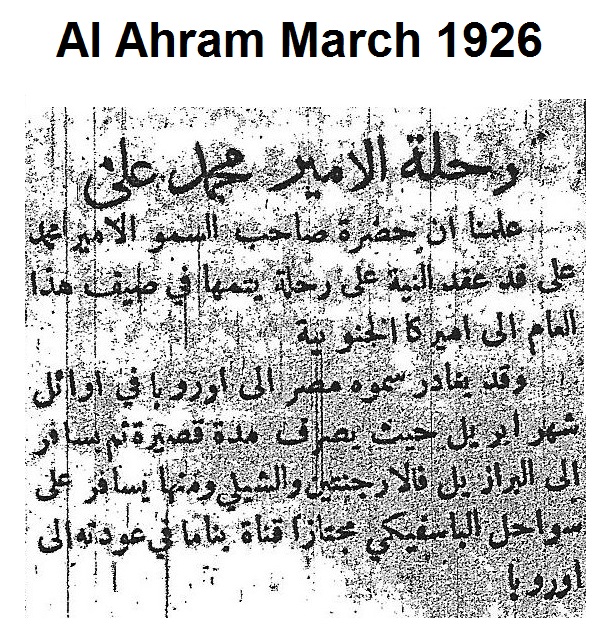 Al Ahram March 1926
رحلة الامير محمد علي
علمنا ان حضرة صاحب السمو الامير محمد
على قد عقد النية على رحلة يتمها في صيف هذا
العام الى اميركا الجنوبية
وقد يغادر سموه مصر الى اوروبا في اوائل
شهر ابريل حيث يصرف مدة قصيرة ثم يسافر
الى البرازيل فالارجنتين والشيلي ومنها يسافر على
سواحل الباسفيكي مجتازا قناة بناما في عودته الى
اوروبا